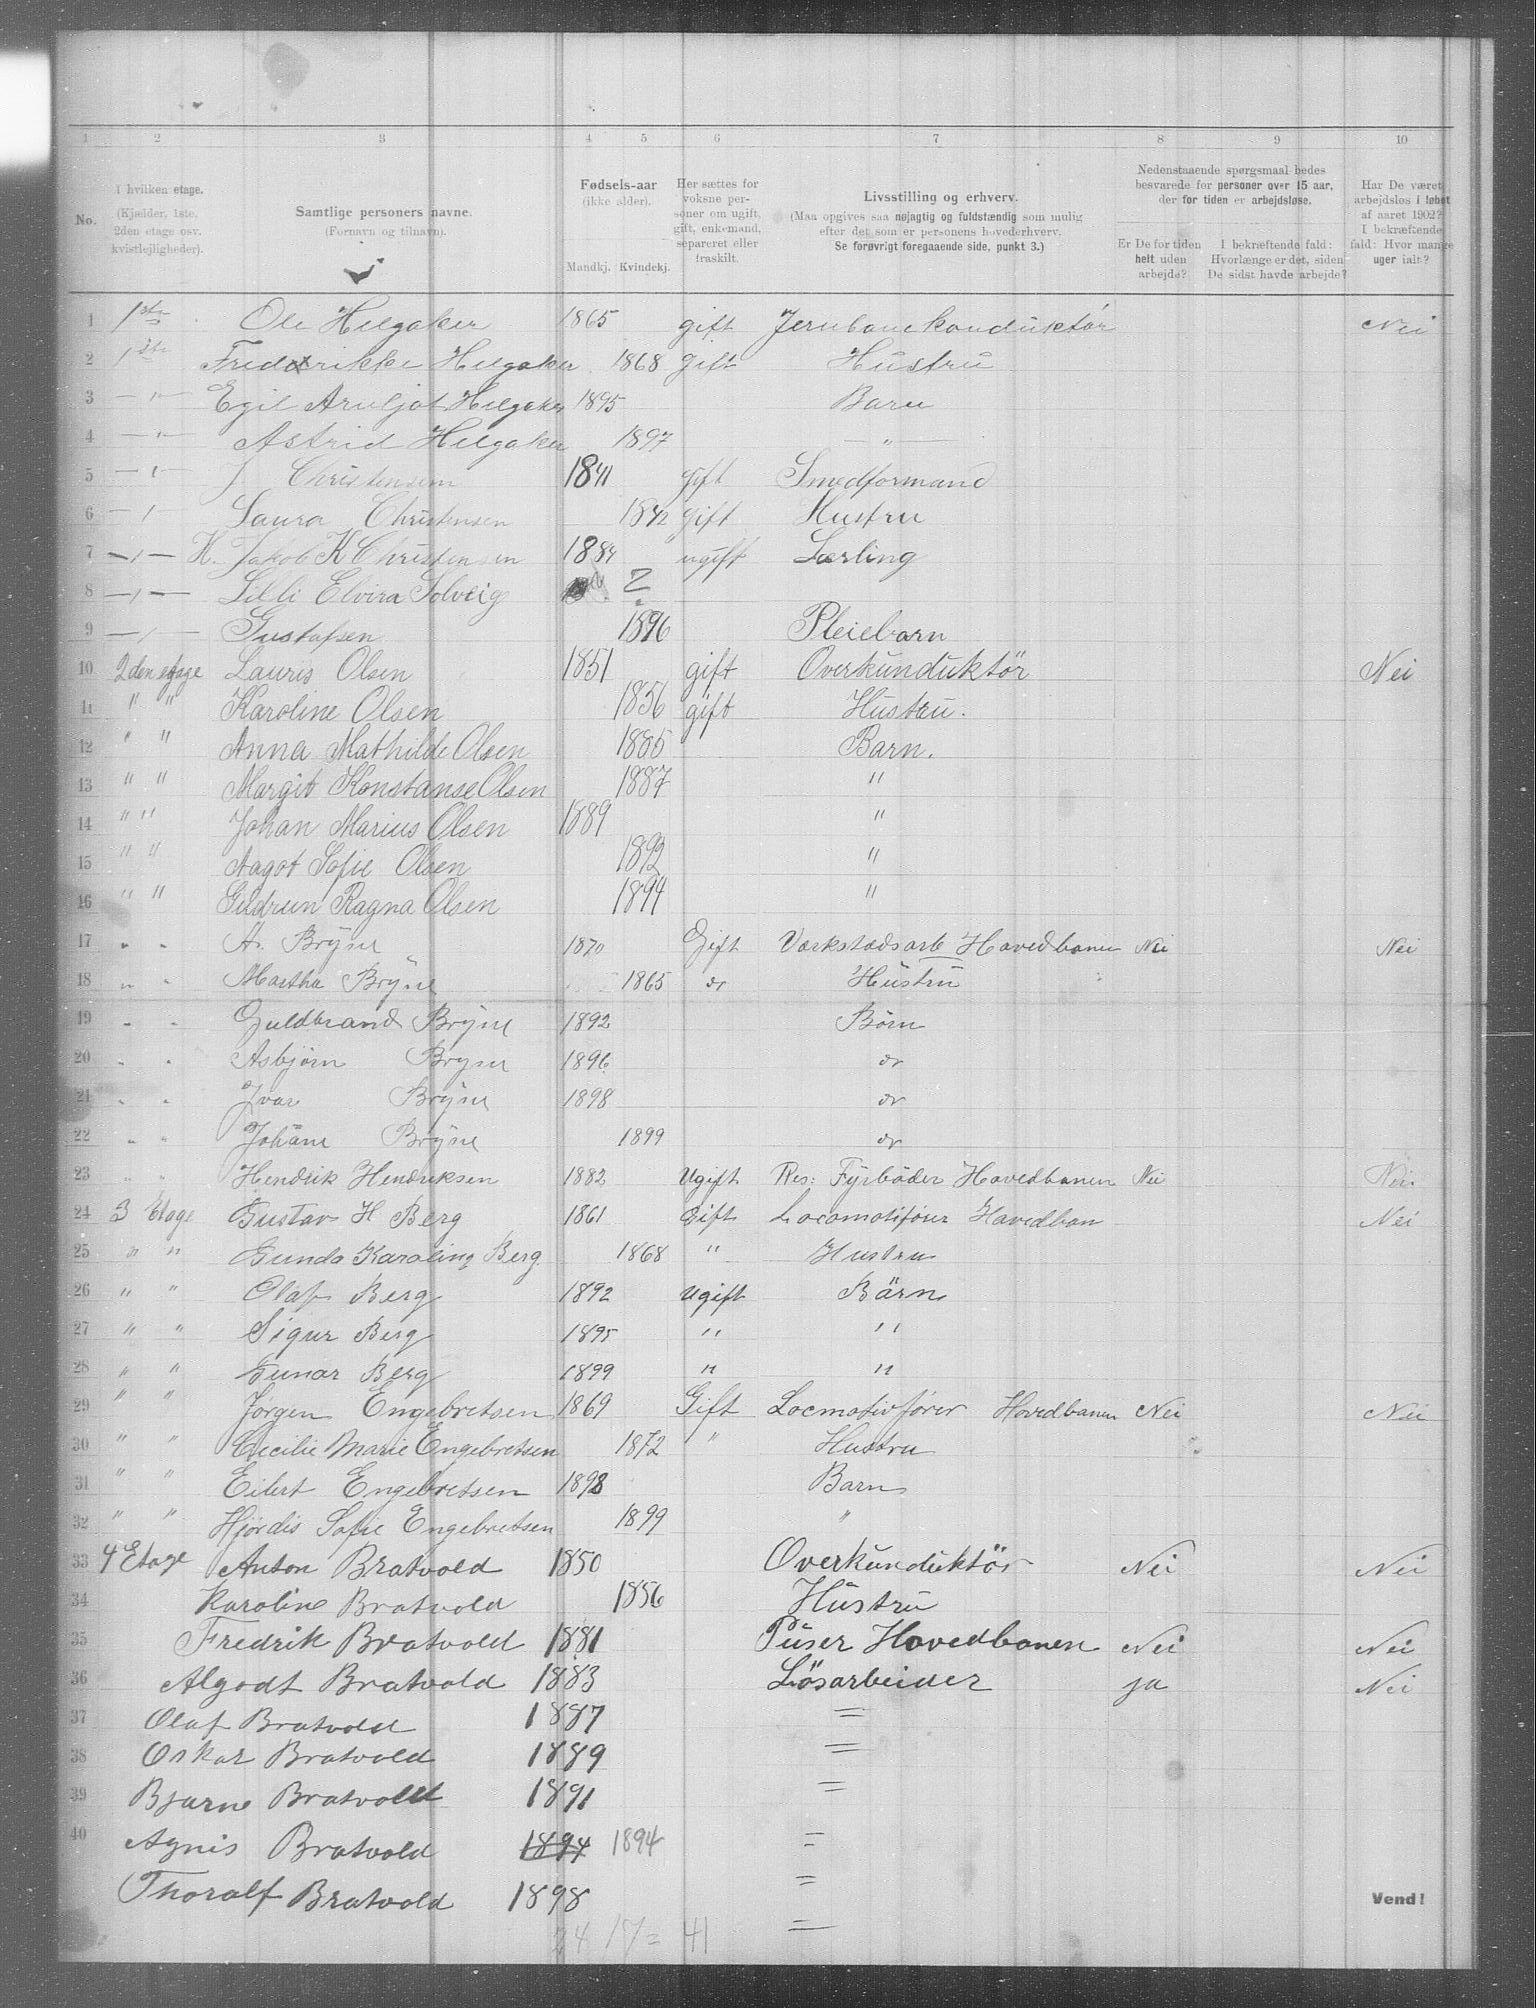 1 2 3 4 5 6 7 8 9 10
No.
I hvilken etage. (Kjælder, 1ste, 2den etage osv. kvistleiligheder).
Samtlige personers navne. (Fornavn og tilnavn).
Fødsels-aar (ikke alder). Mandkj. Kvindekj.
Her sættes for voksne personer om ugift, gift, enkemand, separeret eller fraskilt.
Livsstilling og erhverv. (Maa opgives saa nøjagtig og fuldstændig som mulig efter det som er personens hovederhverv. Se forøvrigt foregaaende side, punkt 3.)
Nedenstaaende spørgsmaal bedes besvarede for personer over 15 aar, der for tiden er arbejdsløse.
Er De for tiden helt uden arbejde?
I bekræftende fald: Hvorlænge er det, siden De sidst havde arbejde?
Har De været arbejdsløs i løbet af aaret 1902? I bekræftende fald: Hvor mange uger ialt?
1 1ste Ole Helgaker 1865 gift Jernbanekonduktør Nei
2 1ste Fredrikke Helgaker 1868 gift Hustru
3 — " — Egil Arnljot Helgaker 1895 Barn
4 — " — Astrid Helgaker 1897 — " —
5 — " — J Christensen 1841 gift Smedformand
6 — " — Laura Christensen 1842 gift Hustru
7 — " — H. Jakob K Christensen 1884 ugift Lærling
8 — " — Lilli Elvira Solveig
9 — " — Gustafsen 1896 Pleiebarn
10 2den etage Lauris Olsen 1851 gift Overkunduktør Nei
11 " " Karoline Olsen 1856 gift Hustru.
12 " " Anna Mathilde Olsen 1885 Barn.
13 " " Margit Konstanse Olsen 1887 "
14 " " Johan Marius Olsen 1889 "
15 " " Aagot Sofie Olsen 1892 "
16 " " Gudrun Ragna Olsen 1894 "
17 " " A. Bryne 1870 Gift Værkstadsarb Hovedbanen Nei Nei
18 " " Martha Bryne 1865 do Hustru
19 " " Guldbrand Bryne 1892 Børn
20 " " Asbjørn Bryne 1896 do
21 " " Ivar Bryne 1898 do
22 " " Johane Bryne 1899 do
23 " " Hendrik Hendriksen 1882 Ugift Res: Fyrbøder Hovedbanen Nei Nei.
24 3 Etage Gustav H Berg 1861 Gift Locomotiförer Hovedban Nei
25 " " Gunda Karoline Berg 1868 " Hustru
26 " " Olaf Berg 1892 Ugift Bärn
27 " " Sigur Berg 1895 " "
28 " " Gunar Berg 1899 " "
29 " " Jørgen Engebretsen 1869 Gift Locmotivfører Hovedbanen Nei Nei
30 " " Cecilie Marie Engebretsen 1872 " Hustru
31 " " Eilert Engebretsen 1898 Barn
32 " " Hjørdis Sofie Engebretsen 1899 "
33 4 Etage Anton Bratvold 1850 Overkunduktör Nei Nei
34 Karoline Bratvold 1856 Hustru
35 Fredrik Bratvold 1881 Püser Hovedbanen Nei Nei
36 Algodt Bratvold 1883 Lösarbeider ja Nei
37 Olaf Bratvold 1887 =
38 Oskar Bratvold 1889 =
39 Bjarne Bratvold 1891 =
40 Agnis Bratvold 1894 1894 =
Thoralf Bratvold 1898 =
Vend!
24 17 = 41 =